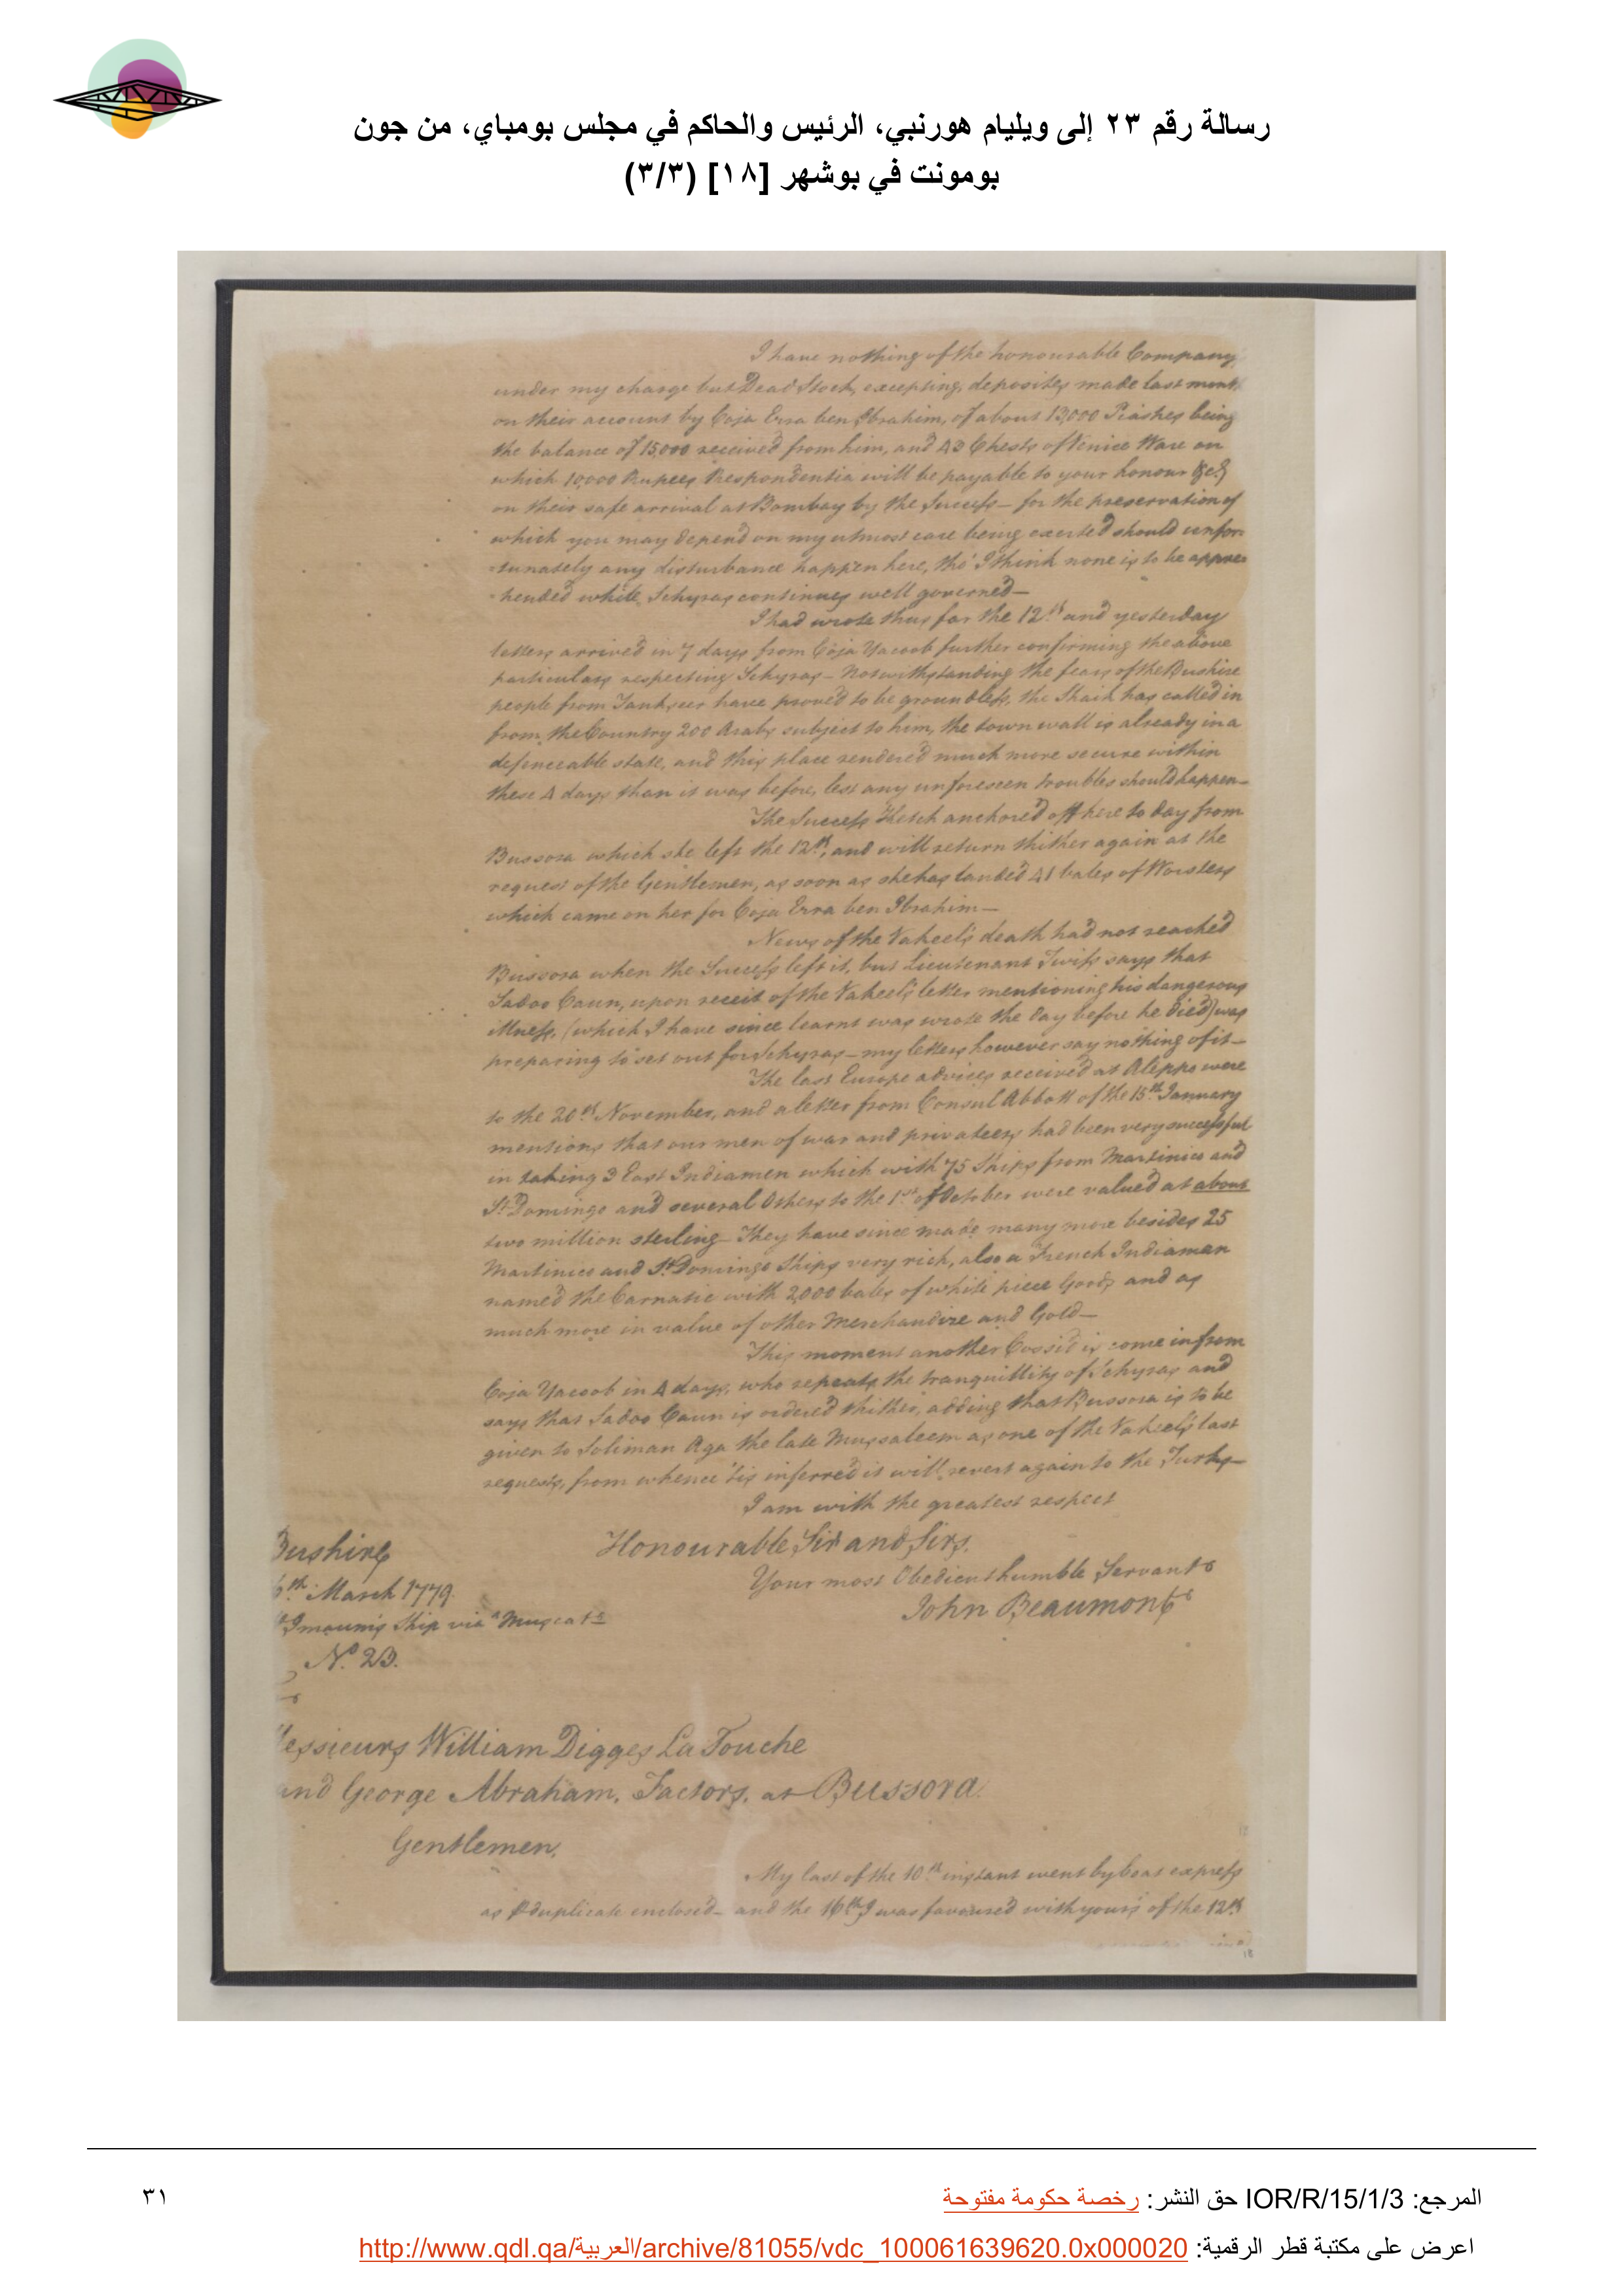 رسالة رقم ٢٣ إلى ويليام هورنبي، الرئيس والحاكم في مجلس بومباي، من جون
بومونت في بوشهر [١٨] (٣/٣)
I have nothing of the honourable Company
under my charge but Dead Stock, excepting, deposites made last month
on their account by Coja Erra ben Ibrahim, of about 13,000 Piastres being
the balance of 15,000 received from him, and 43 Chests of Venice Ware on
which 10,000 Rupees Respondentia will be payable to your honour &ca
on their safe arrival at Bombay by the Success – for the preservation of
which you may depend on my utmost care being exerted should unfor-
-tunately any disturbance happen here, tho' I think none is to be appre-
-hended while Schyras continues well governed –
I had wrote thus far the 12th and yesterday
letters arrived in 7 days from Coja Yacoob further confirming the above
particulars respecting Schyras – Notwithstanding the fears of the Bushire
people from Tankseer have proved to be groundless, the Shaik has called in
from the Country 200 Arabs subject to him, the town wall is already in a
defenceable state, and this place rendered much more secure within
these 4 days than it was before, lest any unforeseen troubles should happen –
The Success Ketch anchored off here to day from
Bussora which she left the 12th, and will return thither again at the
request of the Gentlemen, as soon as she has landed 41 bales of Worsters
which came on her for Coja Erra ben Ibrahim –
News of the Vakeel's death had not reached
Bussora when the Success left it, but Lieutenant Twiss says that
Sadoo Caun, upon receit of the Vakeel's letter mentioning his dangerous
illness, (which I have since learnt was wrote the day before he died) was
preparing to set out for Schyras – my letters however say nothing of it –
The last Europe advices received at Aleppo were
to the 20th November, and a letter from Consul Abbott of the 15th January
mentions that our men of war and privateers had been very successful
in taking 3 East Indiamen which with 75 Ships from Martinico and
St Domingo and several Others to the 1st of October were valued at about
two million sterling – They have since made many more besides 25
Martinico and St Domingo Ships very rich, also a French Indiaman
named the Carnatic with 2,000 bales of white piece Goods and as
much more in value of other Merchandize and Gold –
This moment another Cossid is come in from
Coja Yacoob in 4 days, who repeats the tranquillity of Schyras and
says that Sadoo Caun is ordered thither, adding that Bussora is to be
given to Soliman Aga the late Mussaleem as one of the Vakeel's last
requests, from whence 'tis inferred it will revert again to the Turks –
I am with the greatest respect
Honourable Sir and Sirs.
Your most Obedient humble Servant
John Beaumont
Bushire
th March 1779
Imaum's Ship via Muscat
No. 23.
Messieurs William Digges La Touche
and George Abraham, Factors, at Bussora
Gentlemen,
My last of the 10th instant went by boat express
as duplicate enclosed – and the 16th I was favoured with yours of the 12th
18
المرجع: IOR/R/15/1/3 حق النشر: رخصة حكومة مفتوحة
٣١
اعرض على مكتبة قطر الرقمية: http://www.qdl.qa/العربية/archive/81055/vdc_100061639620.0x000020